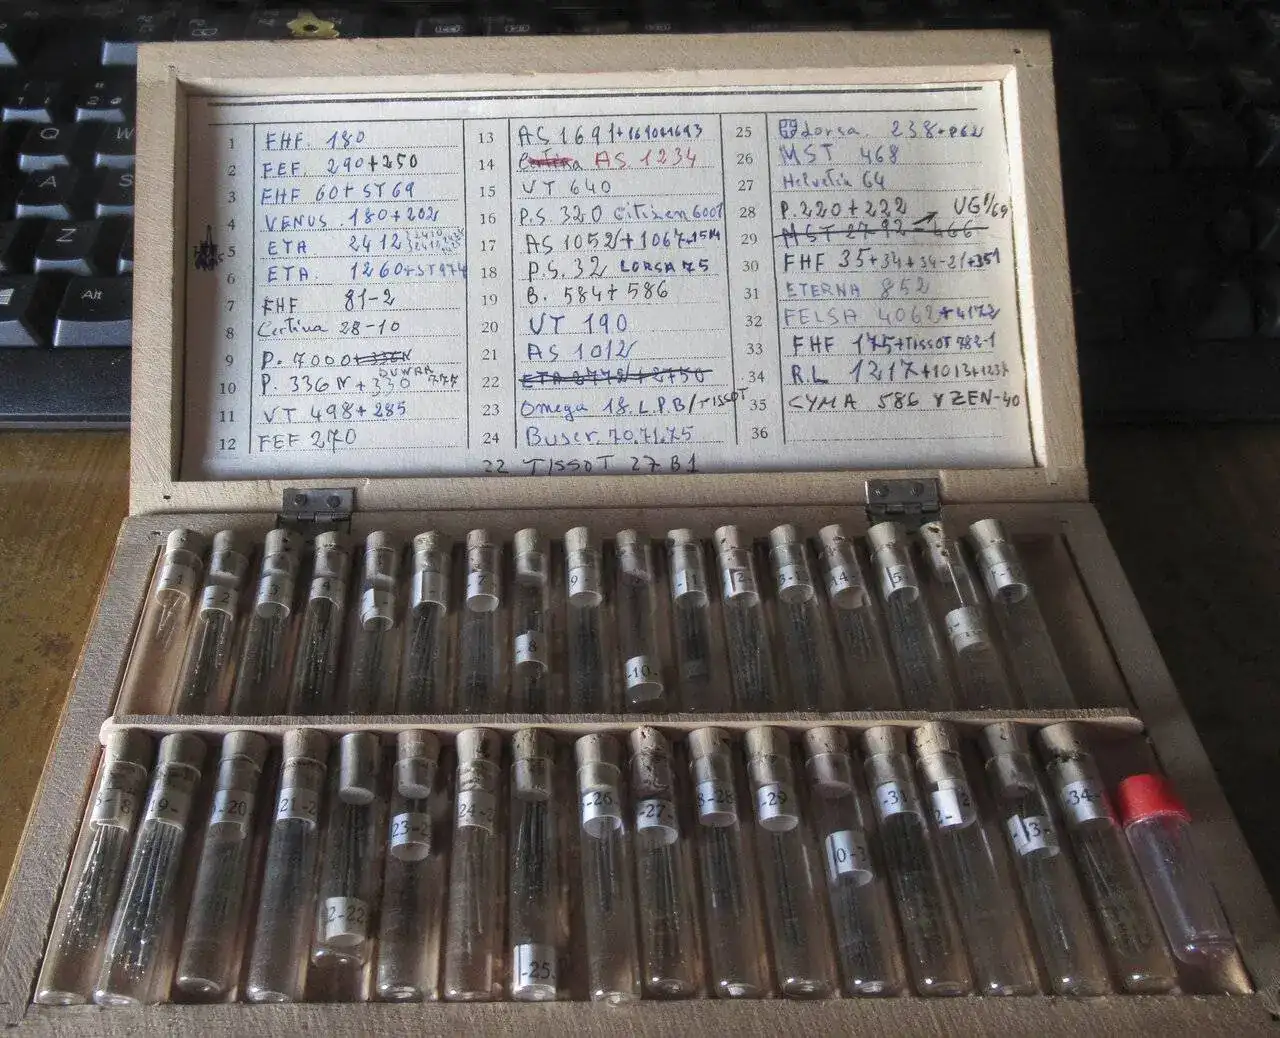 1 FHF. 180
2 FEF. 290+250
3 FHF 60+ST69
4 VENUS. 180+202
5 ETA 2412
6 ETA. 1260+ST974
7 FHF 81-2
8 Certina 28-10
9 P. 7000
10 P. 336 N + 330
11 VT 498+285
12 FEF 270
13 AS 1691+
14 AS. 1234
15 VT 640
16 P.S. 320 Citizen 6001
17 AS 1052/+1067
18 P.S. 32 LORSA 75
19 B. 584+586
20 VT 190
21 AS 1012/
22 ETA 2772/+2750
23 Omega 18. L.P.B/TISSOT
24 Buser. 70.71.75
22 TISSOT 27 B1
25 Lorsa. 238+
26 MST 468
27 Helvetia 64
28 P. 220+222
VG1/69
29 MST
30 FHF 35+34+34-21+351
31 ETERNA 852
32 FELSA 4062+4172
33 FHF 175+TISSOT 782-1
34 R.L 1217+1013+
35 CYMA 586 YZEN-40
36
Q W
A S
Z
Alt
-2
4
7
-8
9
-10-
14-
5
19-
-20
21-2
2-22
23-2
24-
-25
-26
-27-
8-28
-29
0-3
-31
-34-